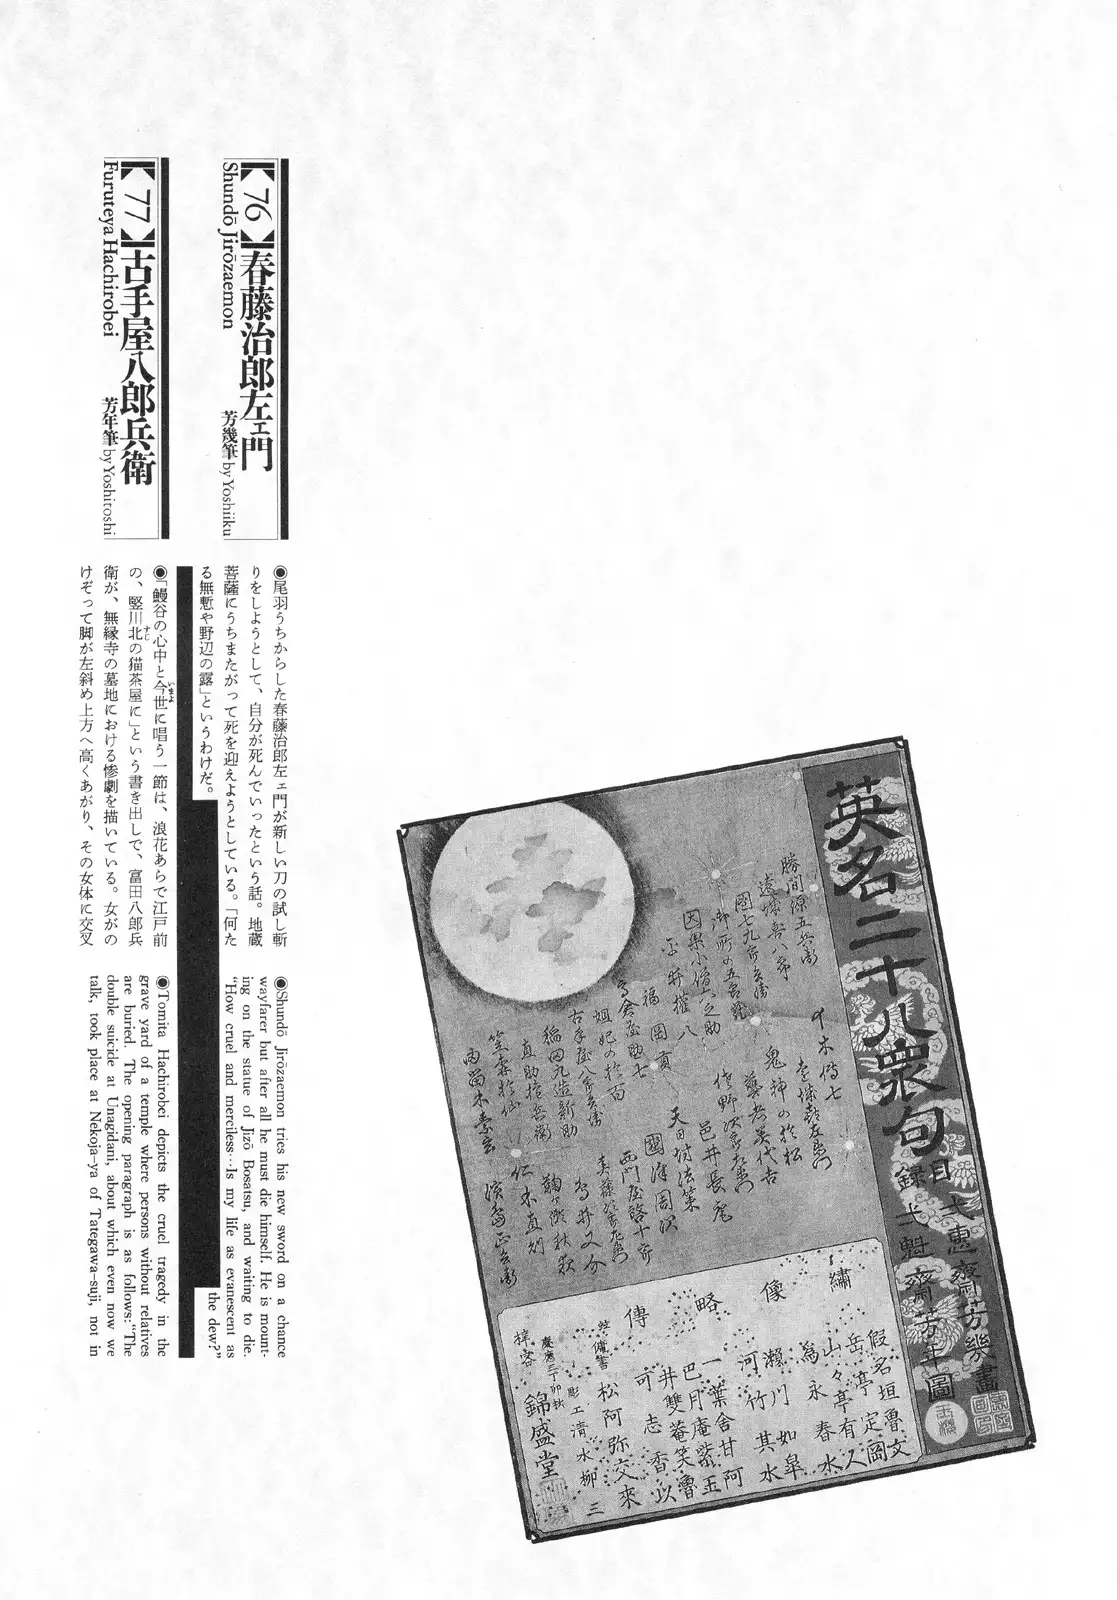 【76】春藤治郎左ェ門
Shundō Jirōzaemon
芳幾筆 by Yoshiiku
◉尾羽うちからした春藤治郎左ェ門が新しい刀の試し斬
りをしようとして、自分が死んでいったという話。地蔵
菩薩にうちまたがって死を迎えようとしている。「何た
る無慙や野辺の露」というわけだ。
◉Shundō Jirōzaemon tries his new sword on a chance
wayfarer but after all he must die himself. He is mount-
ing on the statue of Jizō Bosatsu, and waiting to die.
“How cruel and merciless…Is my life as evanescent as
the dew?”
【77】古手屋八郎兵衛
Furuteya Hachirobei
芳年筆 by Yoshitoshi
◉「鰻谷の心中と今世いまよに唱う一節は、浪花あらで江戸前
の、竪川北すじの猫茶屋に」という書き出しで、富田八郎兵
衛が、無縁寺の墓地における惨劇を描いている。女がの
けぞって脚が左斜め上方へ高くあがり、その女体に交叉
◉Tomita Hachirobei depicts the cruel tragedy in the
grave yard of a temple where persons without relatives
are buried. The opening paragraph is as follows:“The
double suicide at Unagidani, about which even now we
talk, took place at Nekoja-ya of Tategawa-suji, not in
英名二十八衆句
目録
一惠齋芳幾畫
一魁齋芳年圖
勝間源五兵衛
遠城喜八郎
團七九郎兵衛
御所の五郎蔵
因果小僧六之助
平井権八
福岡貢
高倉屋助七
妲妃の於百
古手屋八郎兵衛
稲田九造新助
直助権兵衛
笠森於仙
西門屋啓十郎
鬼神の於松
佐野次郎左衛門
邑井長庵
天日坊法策
國澤周次
鳥井又介
仁木直則
濱島正兵衛
繍像略傳
假名垣魯文
岳亭定岡
山々亭有人
為永春水
瀬川如皐
河竹其水
一葉舎甘阿
巴月庵紫玉
井雙菴笑魯
可志香以
松阿弥交來
傭書
彫工清水柳三
慶應三丁卯秋
錦盛堂